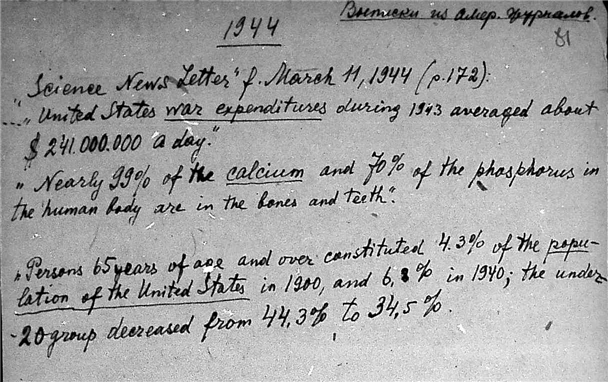 Выписки из амер. журналов.
81
1944
"Science News Letter" f. March 11, 1944 (p.172):
"United States war expenditures during 1943 averaged about
$ 241.000.000 a day."
"Nearly 99% of the calcium and 70% of the phosphorus in
the human body are in the bones and teeth".
"Persons 65 years of age and over constituted 4.3% of the popu-
lation of the United States in 1900, and 6,8% in 1940; the under-
-20 group decreased from 44,3% to 34,5%.